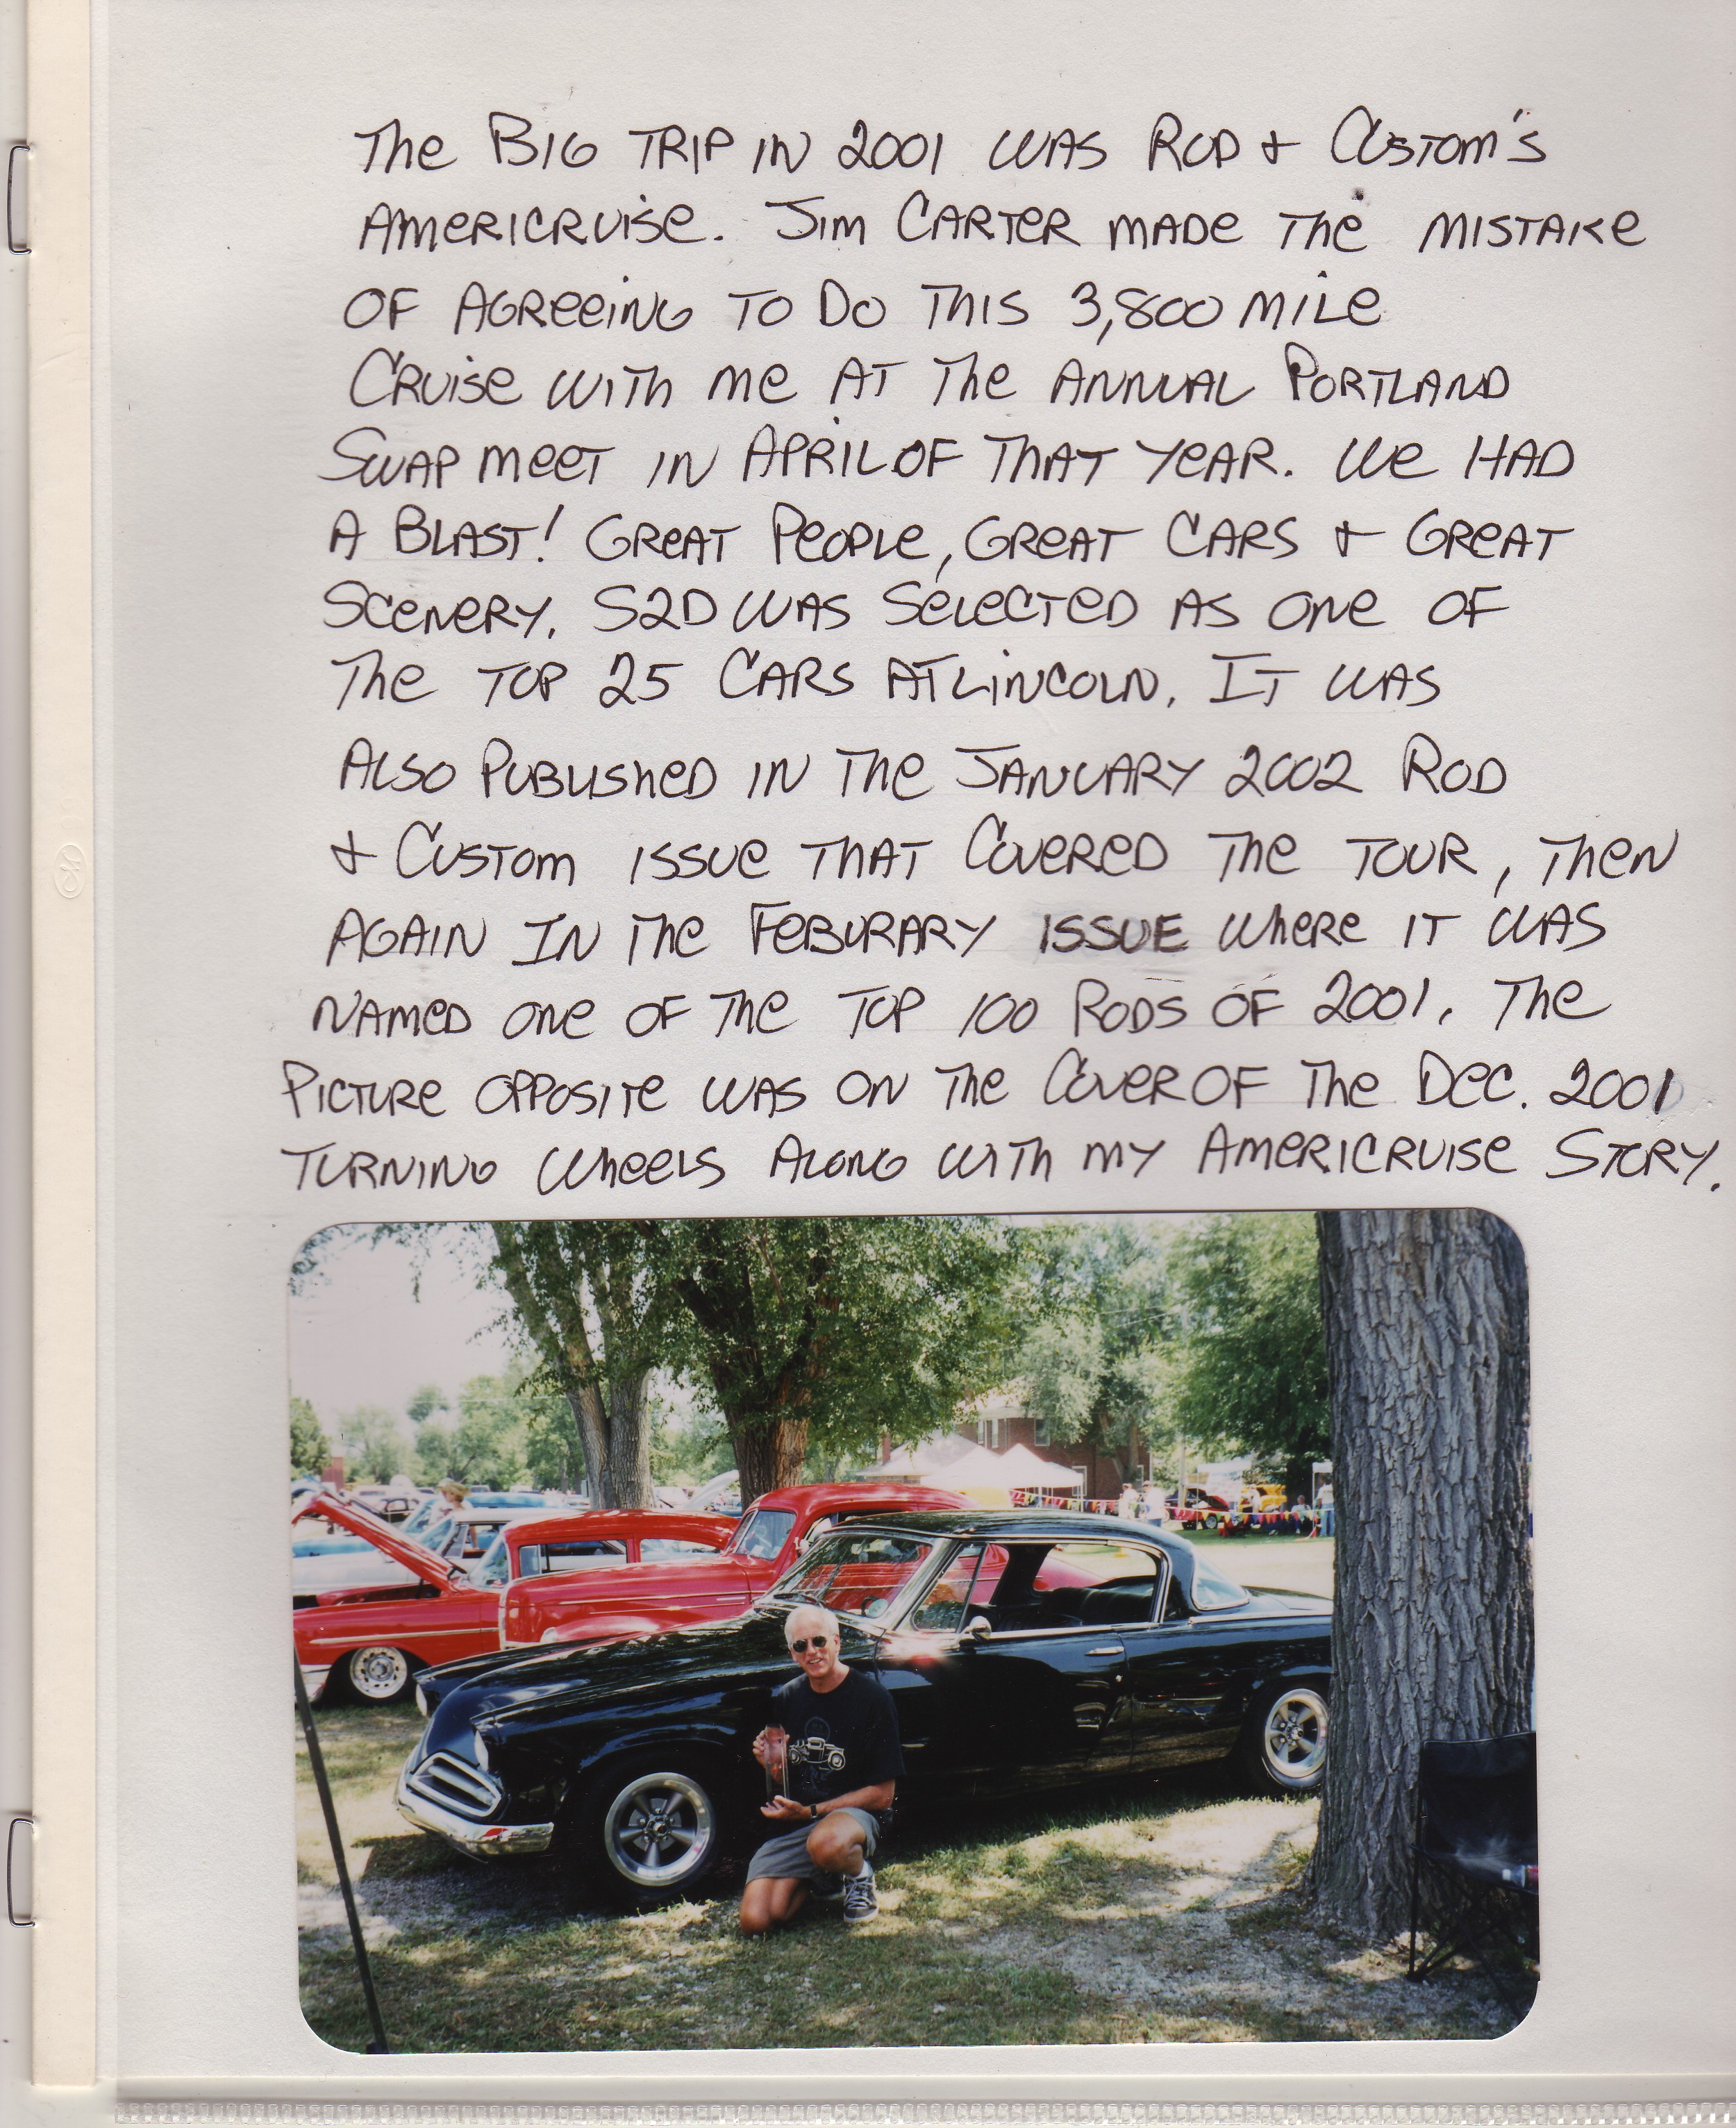 The Big Trip in 2001 was Rod & Custom's
Americruise. Jim Carter made the mistake
of agreeing to do this 3,800 mile
cruise with me at the annual Portland
Swap meet in April of that year. We had
a blast! Great people, great cars & great
scenery. S2D was selected as one of
the top 25 cars at Lincoln. It was
also published in the January 2002 Rod
& Custom issue that covered the tour, then
again in the Feburary issue where it was
named one of the top 100 rods of 2001. The
picture opposite was on the cover of the Dec. 2001
Turning Wheels along with my Americruise story.